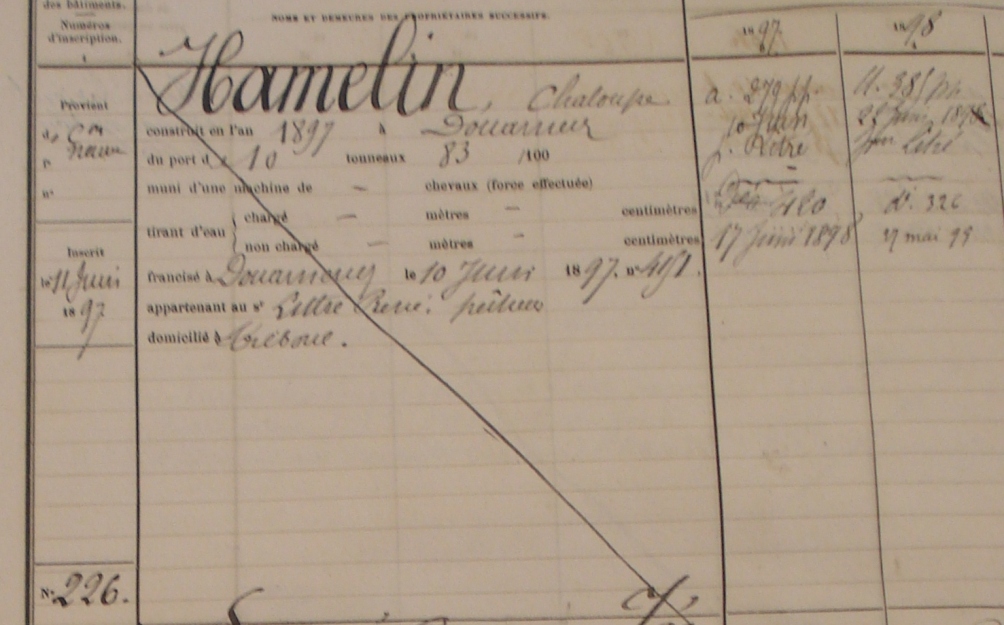 des bâtiments.
Numéros
d'inscription.
1
NOMS ET DEMEURES DES PROPRIÉTAIRES SUCCESSIFS.
1897
1898
Hamelin, Chaloupe.
Provient
construit en l'an 1897 à Douarnenez
du port de 10 tonneaux 83 /100
n°
muni d'une machine de — chevaux (force effectuée)
tirant d'eau
chargé — mètres — centimètres
non chargé — mètres — centimètres
Inscrit
le 11 Juin
1897
francisé à Douarnenez le 10 Juin 1897. n° 491.
appartenant au sr René. pêcheur
domicilié à Tréboul.
a. 279
10 Juin
420
17 Juin 1898
d. 385
23 Juin 1898
d. 326
N° 226.